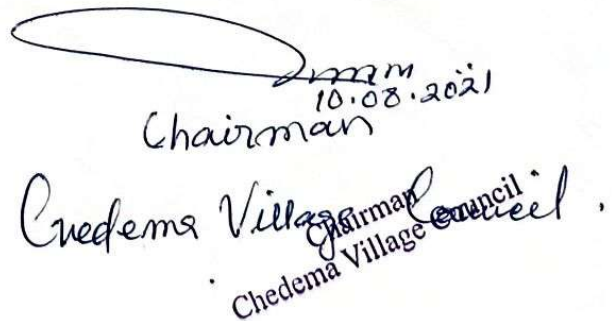 10.08.2021
Chairman
Chedema Village Council.
Chairman
Chedema Village Council